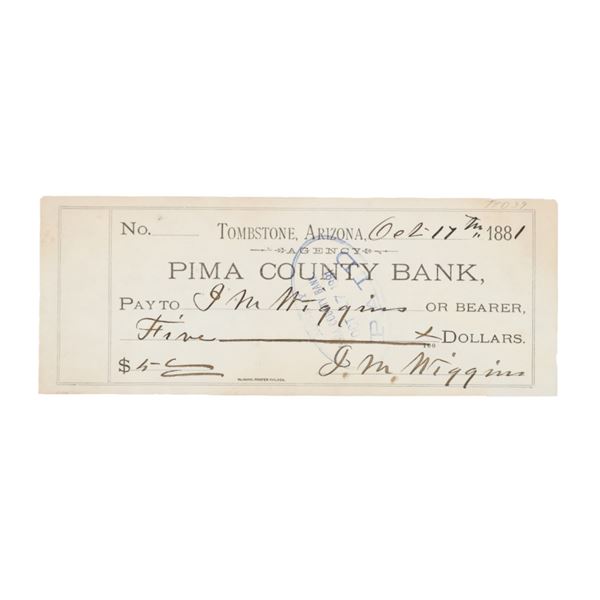 No. TOMBSTONE, ARIZONA, Oct 17th 1881
AGENCY
PIMA COUNTY BANK,
PAY TO J M Wiggins OR BEARER,
Five x/100 DOLLARS.
$ 5 J. M. Wiggins
PAID
OCT 17